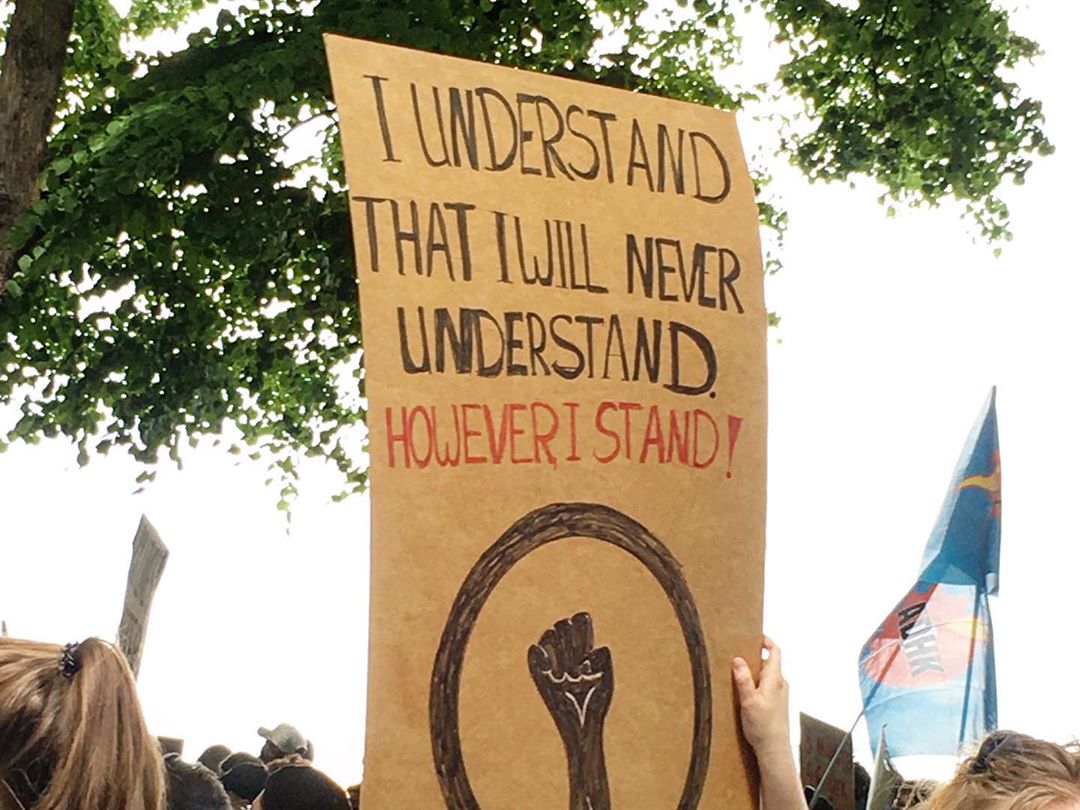 I UNDERSTAND
THAT I WILL NEVER
UNDERSTAND.
HOWEVER, I STAND!